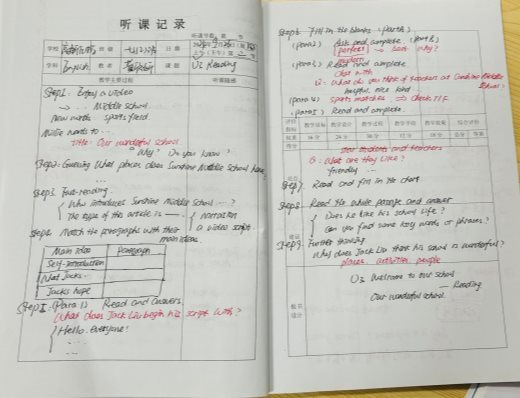 听课记录
听课节数：第 节
学校 班级 日期
上午(下午)第 节
学科 English 教师 课题 U3 Reading
教学主要过程 听课随感
Step1: Enjoy a video
→ ... Middle school
New words sports field
Millie wants to ...
Title: Our wonderful school
Why? Do you know?
Step2: Guessing What places does Sunshine Middle School have?
...
Step3 Fast-reading
Who introduces Sunshine Middle School ...?
The type of this article is —— narration
a video script
Step4 Match the paragraphs with their
main ideas.
Main idea Paragraph
Self-introduction
What Jack's ...
Jack's hope
Step5: (Para 1) Read and answers.
What does Jack Liu begin his script with?
Hello, everyone!
...
...
Step6 Fill in the blanks (para 2)
(para 2) Ask and complete.
(perfect) → bad why?
modern
(para 3) Read and complete
chat with
Q: What do you think of teachers at Sunshine Middle School?
helpful, nice kind...
(para 4) sports matches ⇒ check T/F.
(para 5) Read and complete.
评估指标 教学目标 教学设计 教学过程 教学手段 教学效果 综合评定
得分
students and teachers
Q: What are they like?
friendly ...
Step7. Read and fill in the chart
Step8. Read the whole passage and answer
Does he like his school life?
Can you find some key words or phrases?
Step9 Further thinking
Why does Jack Liu think his school is wonderful?
places, activities, people
板书设计
U3 Welcome to our school
— Reading
Our wonderful school.